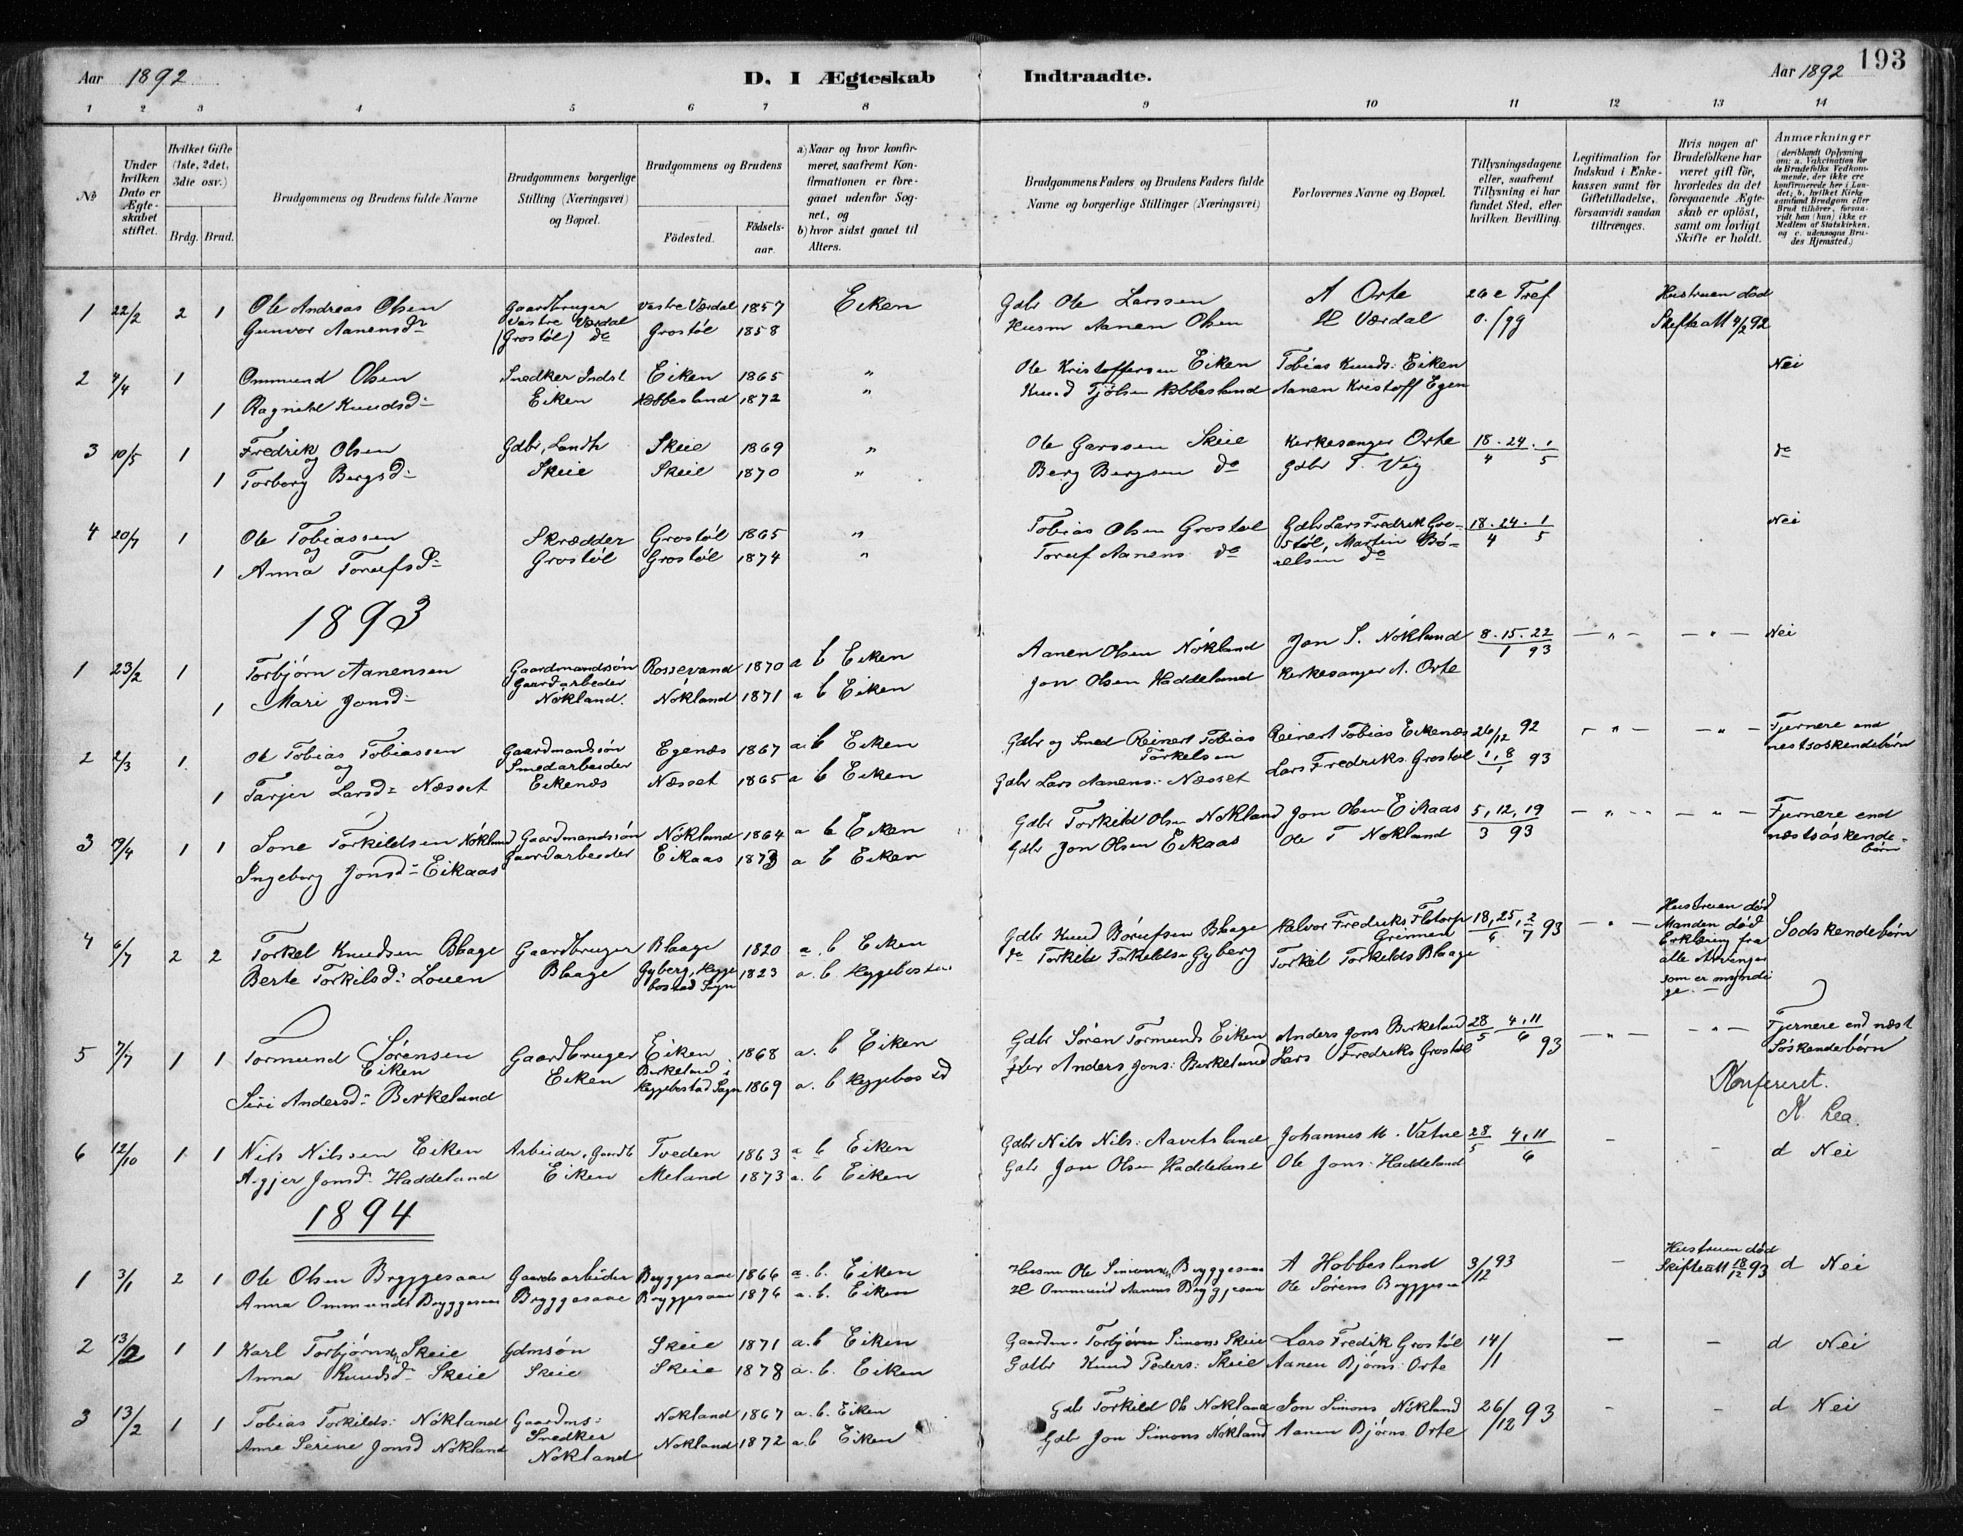 Aar 1892 D. I Ægteskab Indtraadte. Aar 1892 193
1 2 3 4 5 6 7 8 9 10 11 12 13 14
No.
Under hvilken Dato er Ægteskabet stiftet.
Hvilket Gifte (1ste, 2det, 3die osv.)
Brdg. Brud.
Brudgommens og Brudens fulde Navne
Brudgommens borgerlige Stilling (Næringsvei) og Bopæl.
Brudgommens og Brudens
Födested. Födsels-aar.
a) Naar og hvor konfirmeret, saafremt Konfirmationen er foregaaet udenfor Sognet, og
b) hvor sidst gaaet til Alters.
Brudgommens Faders og Brudens Faders fulde Navne og borgerlige Stillinger (Næringsvei)
Forlovernes Navne og Bopæl.
Tillysningsdagene eller, saafremt Tillysning ei har fundet Sted, efter hvilken Bevilling.
Legitimation for Indskud i Enkekassen samt for Giftetilladelse, forsaavidt saadan tiltrænges.
Hvis nogen af Brudefolkene har været gift för, hvorledes da det foregaaende Ægteskab er oplöst, samt om lovligt Skifte er holdt.
Anmærkninger
(deriblandt Oplysning om: a. Vakcination for de Brudefolks Vedkommende, der ikke ere konfirmerede her i Landet; b. hvilket Kirkesamfund Brudgom eller Brud tilhörer, forsaavidt han (hun) ikke er Medlem af Statskirken, og c. udensogns Brudes Hjemsted.)
1 22/2 2 1 Ole Andreas Olsen Gaardbruger Vestre Værdal 1857 Eiken Gdbr Ole Larssen A Orte Hustruen död
Gunvor Aanensdr Vestre Værdal (Grostøl) do Grostøl 1858 Husm Aanen Olsen Værdal Skifteatt 4/2 92
2 4/4 1 Ommund Olsen Snedker Indst Eiken 1865 " Ole Kristoffersen Eiken Tobias Knuds: Eiken Nei
1 Ragnild Knudsd: Eiken Hobbesland 1872 " Knud Tjølsen Hobbesland Aanen Kristoff Egen
3 10/5 1 Fredrik Olsen Gdbr, Landh Skeie 1869 " Ole Garssen Skeie Kirkesanger Orte 18.24/4 . 1/5 do
og
1 Torborg Bergsd: Skeie Skeie 1870 " Berg Bergsen do Gdbr T. Vig
4 20/7 1 Ole Tobiassen Skrædder Grostøl 1865 " Tobias Olsen Grostøl Gdbr Lars Fredrik Gro- 18.24/4 . 1/5 Nei
og støl, Martin Bö-
1 Anna Torufsd: Grostøl Grostøl 1874 " Toruf Aanens do relsen do
1893
1 23/2 1 Torbjørn Aanensen Gaardmandssøn Rossevand 1870 a b Eiken Aanen Olsen Nökland Jon S. Nökland 8.15.22/1 93 — " — — " — Nei
Gaardarbeider
1 Mari Jonsd: Nökland. Nökland 1871 a b Eiken Jon Olsen Haddeland Kirkesanger A. Orte
2 2/3 1 Ole Tobias Tobiassen Gaardmandssøn Egenæs 1867 a b Eiken Gdbr og Smed Reinert Tobias Torkelsen Reinert Tobias Eikenæs 26/12 92 — " — — " — Fjernere end
og Smedarbeider næstsøskendebørn
1 Tarjer Larsd: Næsset Eikenæs Næsset 1865 a b Eiken Gdbr Lars Aanens: Næsset Lars Fredriks Grostøl 1,8/1 93
3 19/4 1 1 Sone Torkildsen Nökland Gaardmandssøn Nökland 1864 a b Eiken Gdbr Torkild Olsen Nökland Jon Olsen Eikaas 5,12,19/3 93 — " — — " — Fjernere end
Ingeborg Jonsd: Eikaas Gaardarbeider Eikaas 1873 a b Eiken Gdbr Jon Olsen Eikaas Ole T Nökland næstsøskende-
børn
4 6/7 2 2 Torkel Knudsen Blaage Gaardbruger Blaage 1820 a. b Eiken Gdbr Knud Börufsen Blaage Halvor Fredriks Flotorp Grimnes 18,25/6, 2/7 93 — " — Hustruen död
Berte Torkilsd: Loeen Blaage Gyberg, Hægebostad Sogn 1823 a. b. Heggebostad do Torkild Torkelds Gyberg Torkil Torkelds Blaage Manden död Sødskendebørn
Erklæring fra
alle Arvinger
som er myndi
ge.
5 7/7 1 1 Tormund Sörensen Eiken Gaardbruger Eiken 1868 a. b Eiken Gdbr Sören Tormunds Eiken Anders Jons Birkeland 28/5 4,11/6 93 — " — — " — Fjernere end næst
Siri Andersd: Birkeland Eiken Birkeland i Heggebostad Sogn 1869 a. b Heggebostad Gdbr Anders Jons: Birkeland Lars Fredriks Grostøl Söskendebörn
Konfereret.
N. Lea.
6 12/10 1 1 Nils Nilssen Eiken Arbeider, Gaardb Tveden 1863 a b Eiken Gdbr Nils Nils: Aavetsland Johannes M. Vatne 28/5 4,11/6 - - d Nei
Agjer Jonsd. Haddeland Eiken Meland 1873 a. b Eiken Gdbr Jon Olsen Haddeland Ole Jons: Haddeland
1894
1 3/1 2 1 Ole Olsen Bryggesaae Gaardsarbeider Bryggesaae 1866 a. b. Eiken Husm Ole Simons Bryggesaae A Hobbesland 3/12 93 - Hustruen död d Nei
Anna Ommunds Bryggesaae Bryggesaae Bryggesaae 1876 a. b. Eiken Ommund Aanens Bryggesaae Ole Sörens Bryggesaa Skifteatt 18/12 93
2 13/2 1 1 Karl Torbjørns Skeie Gdmsøn Skeie 1871 a. b Eiken Gaardm. Torbjörn Simons Skeie Lars Fredik Grostøl 14/1 — — d Nei
Anna Knudsd: Skeie Skeie Skeie 1878 a. b. Eiken Gdbr Knud Peders: Skeie Aanen Bjørns: Orte
3 13/2 1 1 Tobias Torkilds: Nökland Gaardms: Nökland 1867 a. b. Eiken Gdbr Torkild Ols Nökland Jon Simons Nökland 26/12 93 - - d Nei
Anne Serine Jonsd Nökland Snedker Nökland Nökland 1872 a. b Eiken Gdbr Jon Simons Nökland Aanen Bjørns Orte